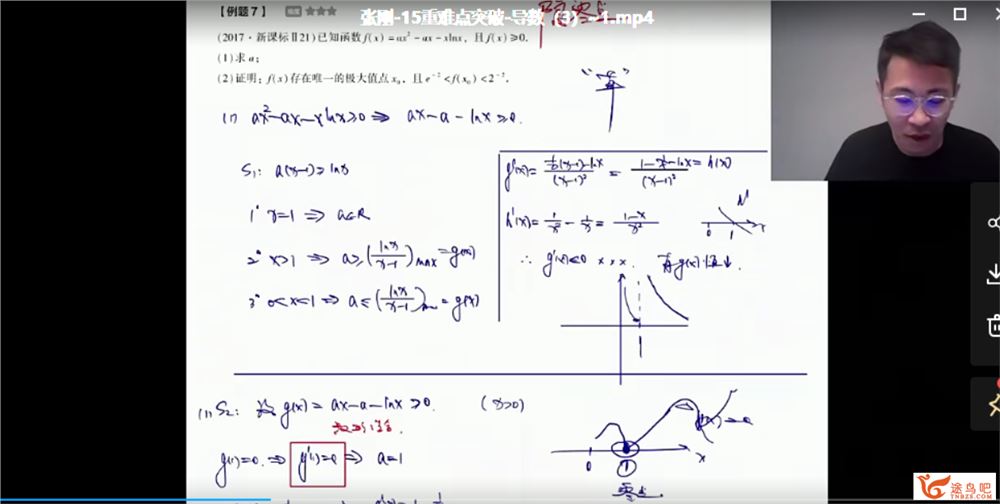 张刚-15重难点突破-导数（3）--1.mp4
【例题7】 ★★★
(2017·新课标Ⅱ21)已知函数f(x)=ax²-ax-xlnx,且f(x)≥0.
(1)求a;
(2)证明:f(x)存在唯一的极大值点x₀,且e⁻²<f(x₀)<2⁻².
(1) ax²-ax-xlnx≥0 ⇒ ax-a-lnx≥0.
S₁: a(x-1)≥lnx
1° x=1 ⇒ a∈R
2° x>1 ⇒ a≥(lnx/(x-1))max=g(x)
3° 0<x<1 ⇒ a≤(lnx/(x-1))min=g(x)
g'(x)=(1/x(x-1)-lnx)/(x-1)²=(1-1/x-lnx)/(x-1)² =h(x)
h'(x)=1/x²-1/x=(1-x)/x²
h'
0 1 x
∴ g'(x)<0 g(x) ↓.
1
(1) S₂: g(x)=ax-a-lnx≥0. (x>0)
g(1)=0. ⇒ g'(1)=0 ⇒ a=1
0 1 x
零点
途鸟吧
TNBZS.COM